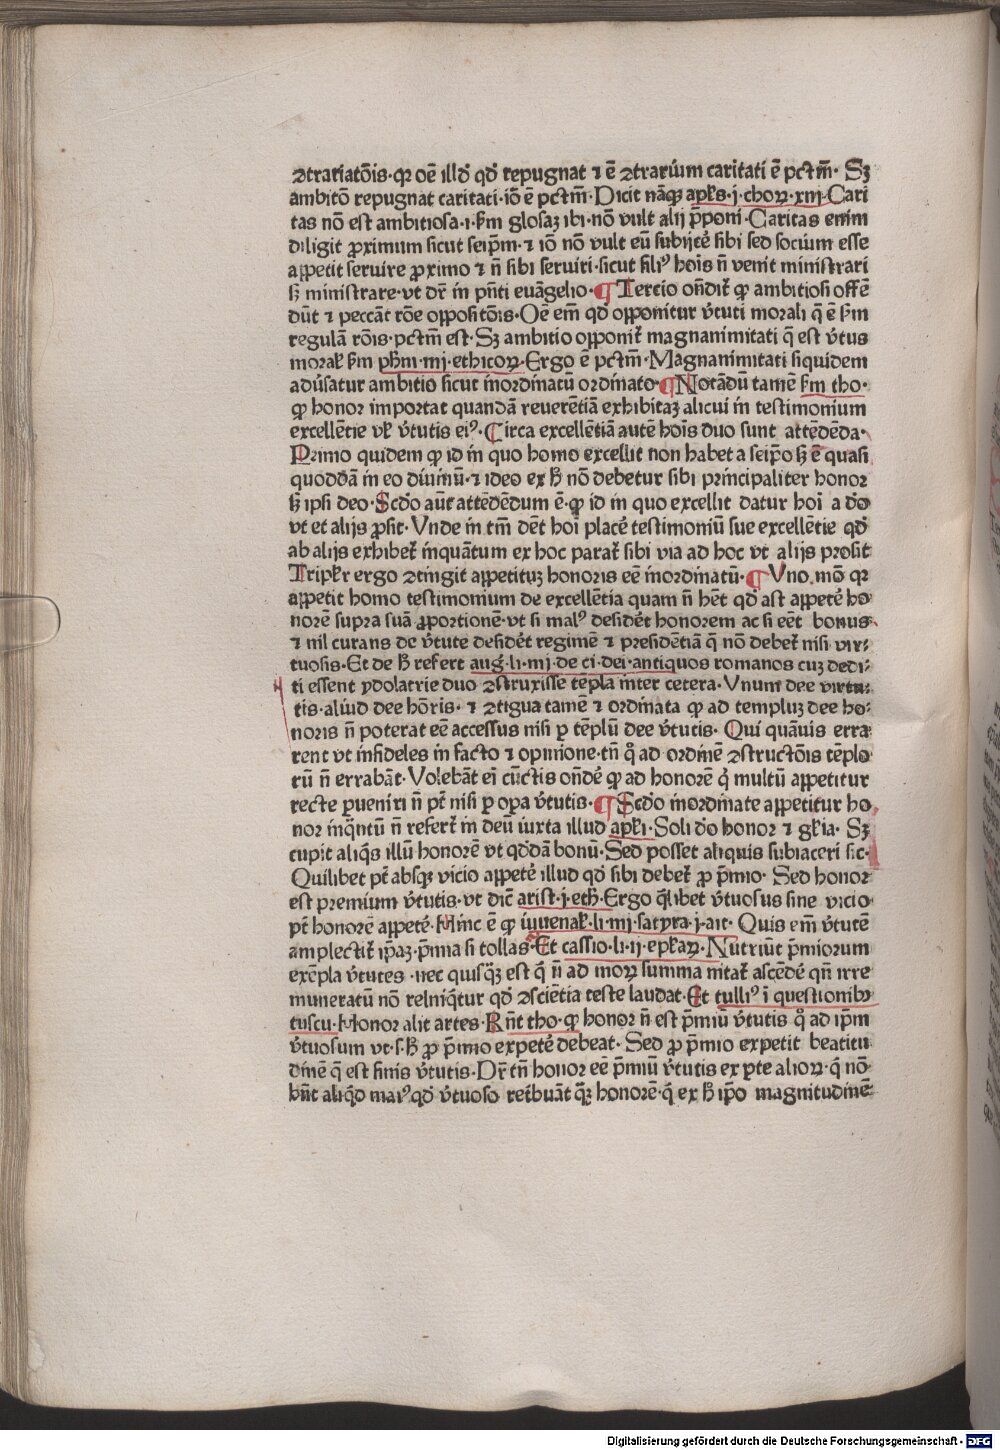 ꝯtrariatōis·qꝛ oē illḋ qḋ repugnat ⁊ ē ꝯtrarium caritati ē pctm̄· Sꝫ
ambitō repugnat caritati·iō ē pctm̄·Dicit nāqꝫ apl̄s·j·choꝝ·xiij·Cari
tas nō est ambitiosa·i·s̄m glosaꝫ ibi·nō vult alij p̄poni·Caritas enim
diligit ꝓximum sicut seip̄m·⁊ iō nō vult eū subijcē sibi sed socium esse
appetit seruire ꝓximo ⁊ n̄ sibi seruiri·sicut filiꝰ hoīs n̄ venit ministrari
sꝫ ministrare·vt dr̄ in pn̄ti euāgelio·¶ Tercio on̄dit̄ ꝙ ambitiosi offē
dūt ⁊ peccāt rōe oppositōis·Oē em̄ qḋ opponitur v̄tuti morali q̄ ē s̄m
regulā rōis·pctm̄ est·Sꝫ ambitio opponit̄ magnanimitati q̄ est v̄tus
moral̄ s̄m ph̄m·iiij·ethicoꝝ·Ergo ē pctm̄·Magnanimitati siquidem
aduersatur ambitio sicut inordinatū ordinato·¶Notādū tamē s̄m tho·
ꝙ honor importat quandā reuerētiā exhibitaꝫ alicui in testimonium
excellētie vl̄ v̄tutis eiꝰ·Circa excellētiā autē hoīs duo sunt attēdēda·
Primo quidem ꝙ id in quo homo excellit non habet a seip̄o sꝫ ē quasi
quoddā in eo diuinū·⁊ ideo ex h̄ nō debetur sibi principaliter honor
sꝫ ipsi deo·Scḋo aūt attēdēdum ē·ꝙ id in quo excellit datur hoī a ḋo
vt et alijs ꝓsit·Vnde in tm̄ dēt hoī placē testimoniū sue excellētie qḋ
ab alijs exhibet̄ inquātum ex hoc parat̄ sibi via ad hoc vt alijs prosit
Triplr̄ ergo ꝯtingit appetituꝫ honoris eē inordinatū·¶ Vno mō qꝛ
appetit homo testimonium de excellētia quam n̄ hēt qḋ ast appetē ho
norē supra suā ꝓportionē·vt si malꝰ desidēt honorem ac si eēt bonus
⁊ nil curans de v̄tute desidēt regimē ⁊ presidētiā q̄ nō debet̄ nisi vir⸗
tuosis·Et de h̄ refert auḡ·li·iiij·de ci·dei·antiquos romanos cuꝫ dedi⸗
ti essent ydolatrie duo ꝯstruxisse tēpla inter cetera·Vnum dee virtu⸗
tis·aliud dee hōris·⁊ ꝯtigua tamē ⁊ ordinata ꝙ ad templuꝫ dee ho⸗
noris n̄ poterat eē accessus nisi ꝑ tēplū dee v̄tutis·Qui quāuis erra
rent vt infideles in facto ⁊ opinione·tn̄ q̊ ad ordinē ꝯstructōis tēplo
rū n̄ errabāt·Volebāt eī cūctis on̄dē ꝙ ad honorē q̇ multū appetitur
recte ꝑueniri n̄ pt̄ nisi ꝑ oꝑa v̄tutis·¶ Scḋo inordinate appetitur ho
nor inq̄ntū n̄ refert̄ in deū iuxta illud apl̄i·Soli ḋo honor ⁊ gl̄ia· Sꝫ
cupit aliq̇s illū honorē vt qḋdā bonū·Sed posset aliquis subiaceri sic·
Quilibet pt̄ absqꝫ vicio appetē illud qḋ sibi debet̄ ꝓ p̄mio· Sed honor
est premium v̄tutis·vt dic̄ arist·j·eth̄·Ergo q̄libet v̄tuosus sine vicio
pt̄ honorē appetē·Hinc ē ꝙ iuuenal̄·li·iiij·satyra·j·ait· Quis em̄ v̄tutē
amplectit̄ ip̄aꝫ·p̄mia si tollas·Et cassio·li·ij·epl̄aꝝ·Nutriūt p̄miorum
exēpla v̄tutes·nec quisq̄ꝫ est q̇ n̄ ad moꝝ summa nitat̄ ascēdē qn̄ irre
muneratū nō relinq̄tur qḋ ꝯsciētia teste laudat·Et tulliꝰ ī questionibꝰ
tuscu·Honor alit artes·Rn̄t tho·ꝙ honor n̄ est p̄miū v̄tutis q̊ ad ip̄m
v̄tuosum vt·s·h̄ ꝓ p̄mio expetē debeat·Sed ꝓ p̄mio expetit beatitu
dinē q̄ est finis v̄tutis·Dr̄ tn̄ honor eē p̄miū v̄tutis ex ꝑte alioꝝ·q̇ nō
hn̄t aliq̇d maiꝰ qḋ v̄tuoso retbuāt q̄ꝫ honorē·q̇ ex h̄ ip̄o magnitudinē
Digitalisierung gefördert durch die Deutsche Forschungsgemeinschaft - DFG